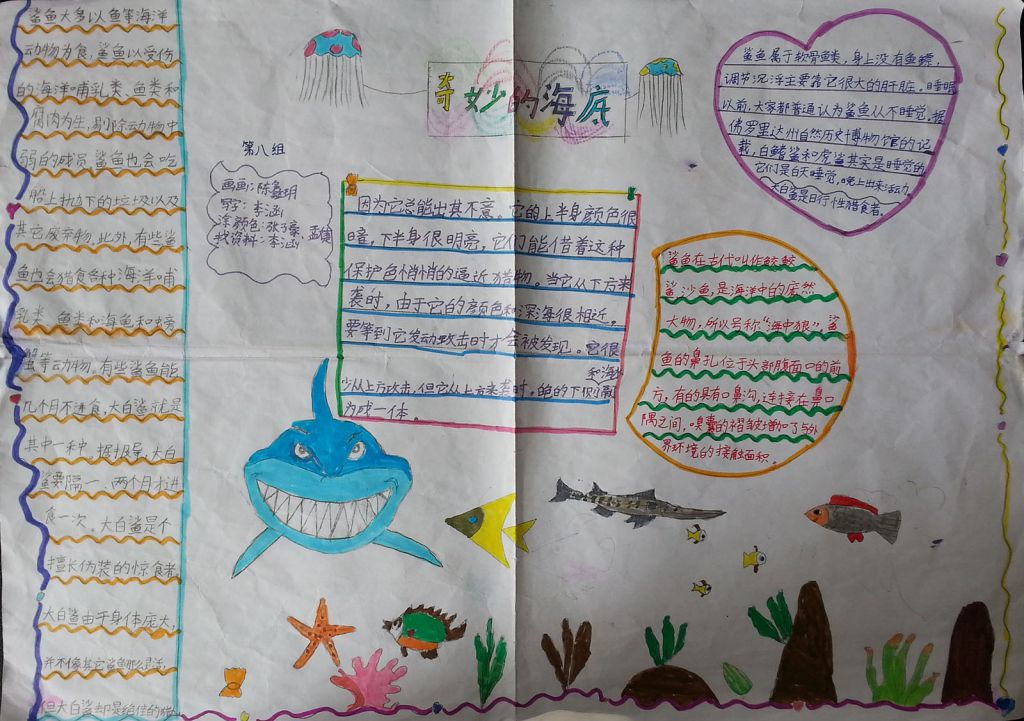 奇妙的海底
第八组
画画:陈鑫玥
写字:李涵
涂颜色:张子豪、孟健
找资料:李涵
鲨鱼大多以鱼等海洋
动物为食,鲨鱼以受伤
的海洋哺乳类、鱼类和
腐肉为生,剔除动物中
弱的成员,鲨鱼也会吃
船上抛下的垃圾以及
其它废弃物。此外,有些鲨
鱼也会猎食各种海洋哺
乳类、鱼类和海鱼和螃
蟹等动物。有些鲨鱼能
几个月不进食,大白鲨就是
其中一种。据报导,大白
鲨要隔一、两个月才进
食一次。大白鲨是个
擅长伪装的惊食者,
大白鲨由于身体庞大,
并不像其它鲨鱼那么灵活,
但大白鲨却是绝佳的猎
因为它总能出其不意。它的上半身颜色很
暗,下半身很明亮,它们能借着这种
保护色悄悄的逼近猎物。当它从下方来
袭时,由于它的颜色和深海很相近。
要等到它发动攻击时才会被发现。它很
少从上方攻击,但它从上方来袭时,的下腹
和海
为成一体。
鲨鱼属于软骨鱼类,身上没有鱼鳔,
调节沉浮主要靠它很大的肝脏。睡眠
以前,大家都普通认为鲨鱼从不睡觉,据
佛罗里达州自然历史博物馆的记
载,白鳍鲨和虎鲨其实是睡觉的
它们是白天睡觉,晚上出来活动
大白鲨是日行性猎食者。
鲨鱼在古代叫作鲛、鲛
鲨、沙鱼,是海洋中的庞然
大物,所以号称“海中狼”。鲨
鱼的鼻孔位于头部腹面口的前
方,有的具有口鼻沟,连接在鼻口
隅之间,嗅囊的褶皱增加了与外
界环境的接触面积。